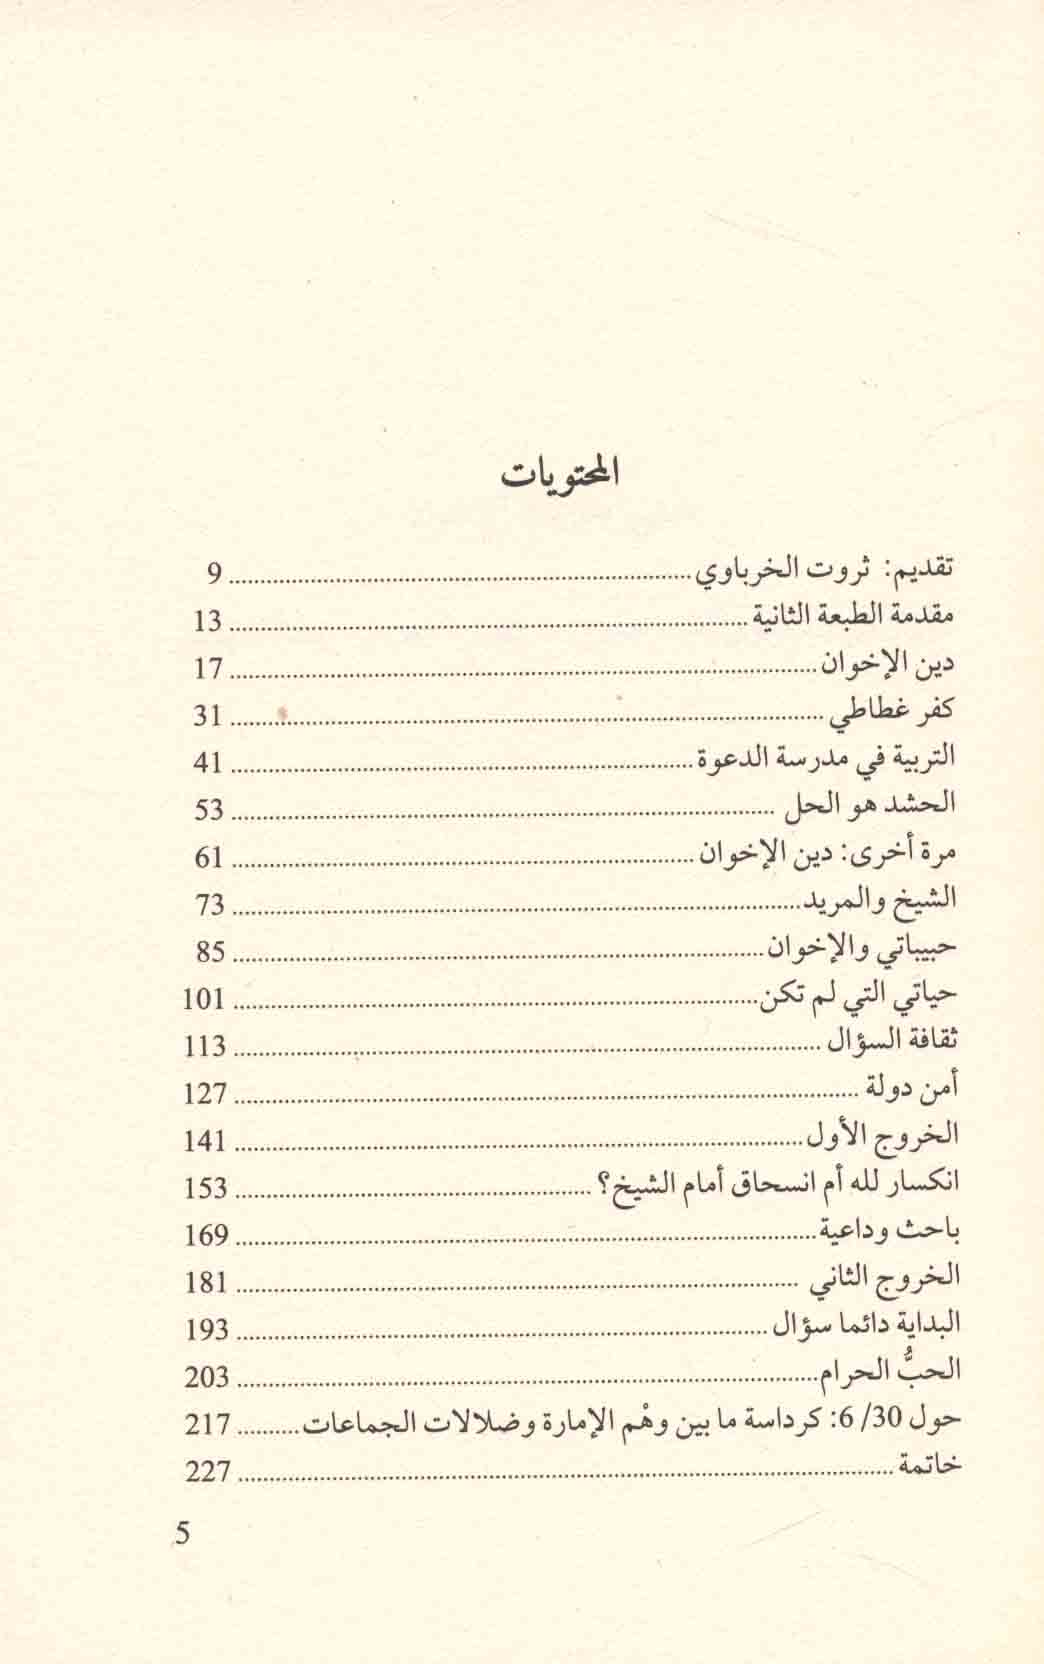 المحتويات
تقديم: ثروت الخرباوي ........ 9
مقدمة الطبعة الثانية ........ 13
دين الإخوان ........ 17
كفر غطاطي ........ 31
التربية في مدرسة الدعوة ........ 41
الحشد هو الحل ........ 53
مرة أخرى: دين الإخوان ........ 61
الشيخ والمريد ........ 73
حبيباتي والإخوان ........ 85
حياتي التي لم تكن ........ 101
ثقافة السؤال ........ 113
أمن دولة ........ 127
الخروج الأول ........ 141
انكسار لله أم انسحاق أمام الشيخ؟ ........ 153
باحث وداعية ........ 169
الخروج الثاني ........ 181
البداية دائما سؤال ........ 193
الحبُّ الحرام ........ 203
حول 30/ 6: كرداسة ما بين وهْم الإمارة وضلالات الجماعات ........ 217
خاتمة ........ 227
5